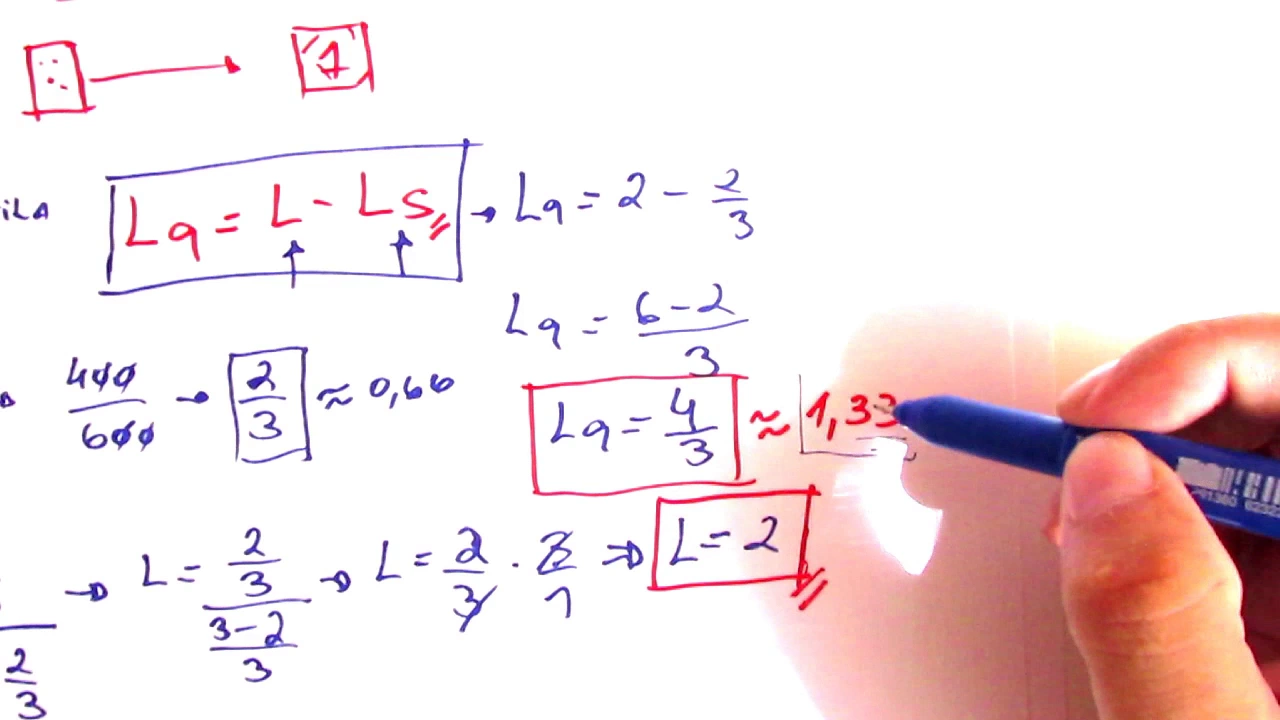 1
iLA
Lq = L - Ls → Lq = 2 - 2/3
Lq = (6-2)/3
400/600 → 2/3 ≈ 0,66
Lq = 4/3 ≈ 1,33
→ L = (2/3)/((3-2)/3) → L = 2/3 · 3/1 ⇒ L = 2
2/3